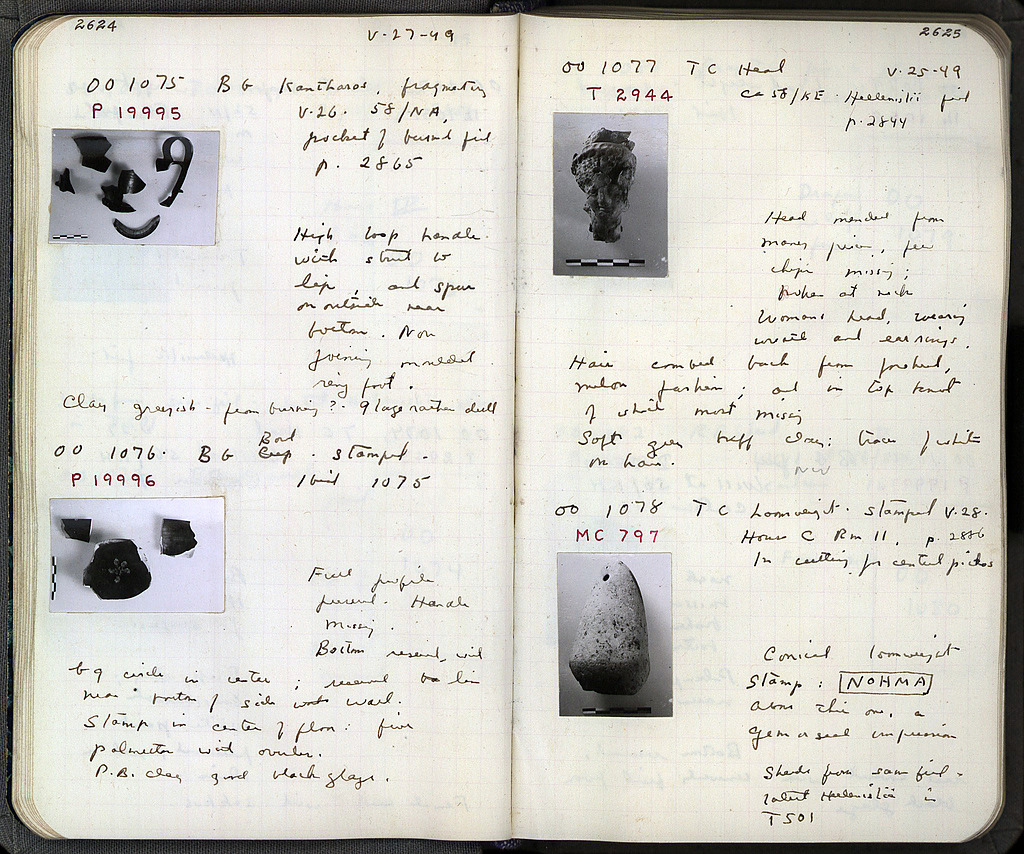 2624
V-27-49
OO 1075 BG Kantharos, fragmentary
P 19995
V.26. 58/NA,
pocket of burned fill
p. 2865
High loop handle
with strut to
lip, and spur
on outside near
bottom. Non
joining moulded
ring foot.
Clay greyish - from burning? - glaze rather dull
Bowl
OO 1076. BG Cup. stamped.
P 19996
/bid 1075
Full profile
preserved. Handle
missing.
Bottom reserved, with
bg circle in center; reserved line
near bottom of side wall.
Stamp in center of floor: five
palmettes with ovules.
P.B. clay good black glaze.
2625
OO 1077 TC Head V-25-49
T 2944
Ca 58/KE. Hellenistic fill
p. 2844
Head mended from
many pieces, few
chips missing;
broken at neck
Womans head, wearing
wreath and earrings.
Hair combed back from forehead,
melon fashion; and in top knot
of which most missing
Soft grey buff clay; traces of white
on hair.
NW
OO 1078 TC Loomweight. Stamped V.28.
MC 797
House C Rm 11, p. 2886
In cutting for central pithos
Conical loomweight
Stamp: NOHMA
above this one, a
gem or seal impression
Sherds from same fill -
latest Hellenistic in
TS01